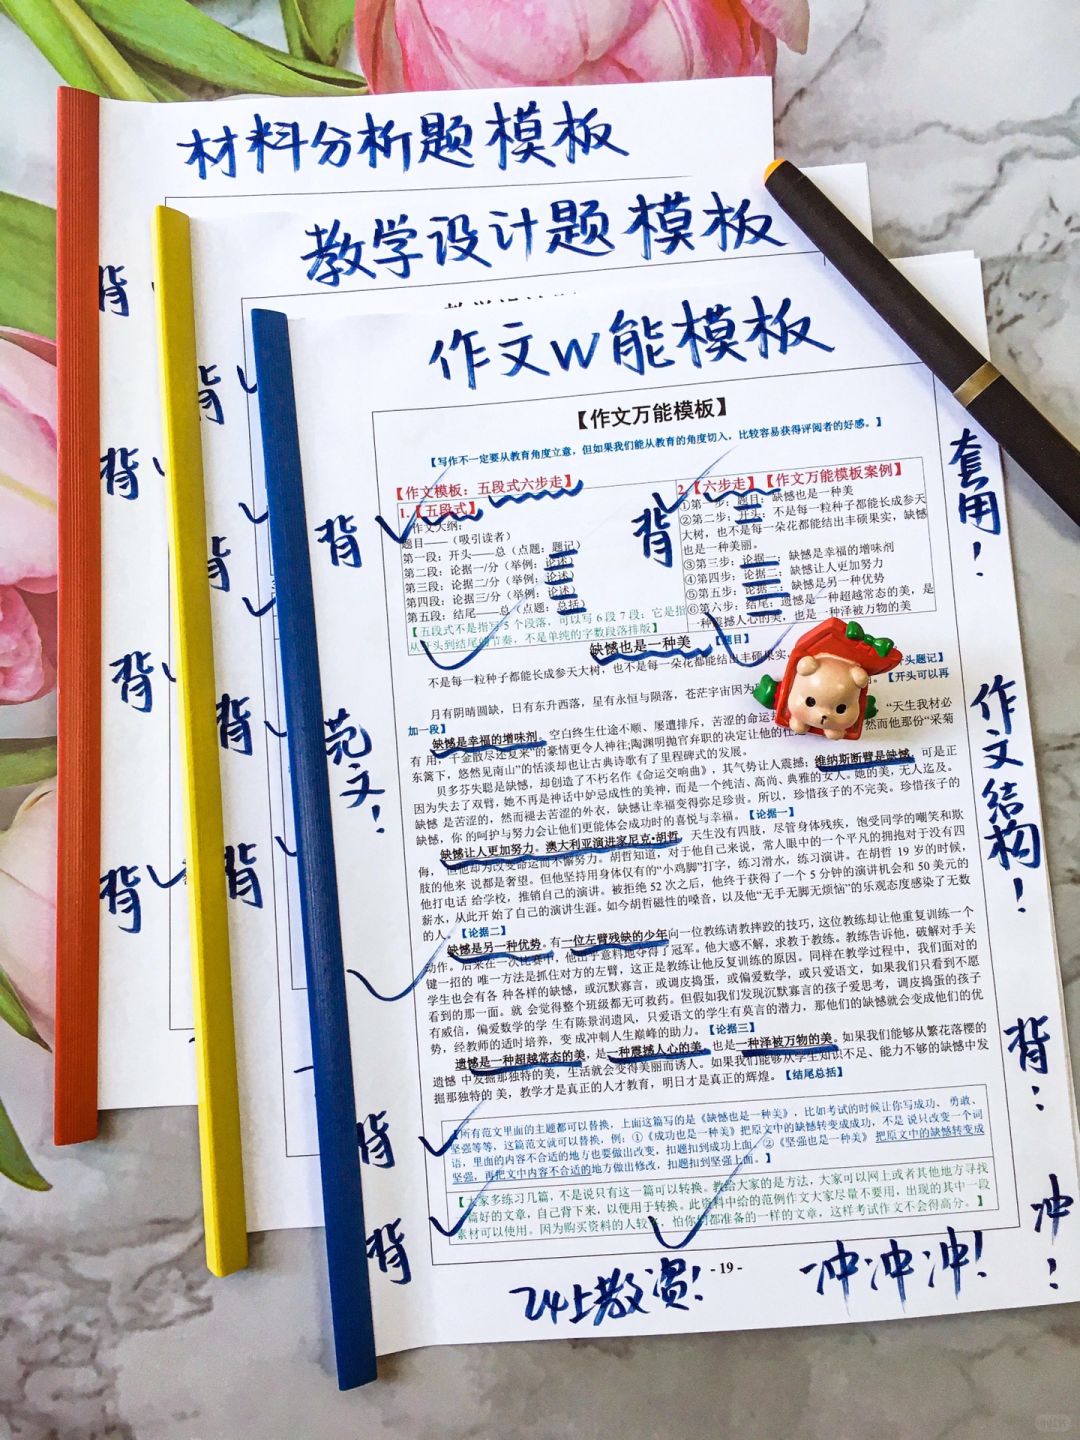 材料分析题模板
教学设计题模板
作文W能模板
背
背
背
背
背
背
背
背
背
背
范文！
背
背
套用！
作文结构！
背：
冲！
【作文万能模板】
【写作不一定要从教育角度立意，但如果我们能从教育的角度切入，比较容易获得评阅者的好感。】
【作文模板：五段式六步走】
1.【五段式】
作文大纲：
题目——（吸引读者）
第一段：开头——总（点题：题记）
第二段：论据一/分（举例：论述）
第三段：论据二/分（举例：论述）
第四段：论据三/分（举例：论述）
第五段：结尾——总（点题：总括）
【五段式不是指写5个段落，可以写6段7段；它是指
从开头到结尾的节奏，不是单纯的字数段落排版】
2.【六步走】【作文万能模板案例】
①第一步：题目：缺憾也是一种美
②第二步：开头：不是每一粒种子都能长成参天
大树，也不是每一朵花都能结出丰硕果实，缺憾
也是一种美丽。
③第三步：论据一：缺憾是幸福的增味剂
④第四步：论据二：缺憾让人更加努力
⑤第五步：论据二：缺憾是另一种优势
⑥第六步：结尾：遗憾是一种超越常态的美，是
一种震撼人心的美，也是一种泽被万物的美
缺憾也是一种美 【题目】
不是每一粒种子都能长成参天大树，也不是每一朵花都能结出丰硕果实， 开头题记】
月有阴晴圆缺，日有东升西落，星有永恒与陨落，苍茫宇宙因为 【开头可以再
加一段】
缺憾是幸福的增味剂。空白终生仕途不顺、屡遭排斥，苦涩的命运 “天生我材必
有 用，千金散尽还复来”的豪情更令人神往；陶渊明抛官弃职的决定让他的仕 然而他那份“采菊
东篱下，悠然见南山”的恬淡却也让古典诗歌有了里程碑式的发展。
贝多芬失聪是缺憾，却创造了不朽名作《命运交响曲》，其气势让人震撼；维纳斯断臂是缺憾，可是正
因为失去了双臂，她不再是神话中妒忌成性的美神，而是一个纯洁、高尚、典雅的女人。她的美，无人迄及。
缺憾 是苦涩的，然而褪去苦涩的外衣，缺憾让幸福变得弥足珍贵。所以，珍惜孩子的不完美。珍惜孩子的
缺憾，你 的呵护与努力会让他们更能体会成功时的喜悦与幸福。【论据一】
缺憾让人更加努力。澳大利亚演进家尼克·胡哲，天生没有四肢，尽管身体残疾，饱受同学的嘲笑和欺
侮，但他却为改变命运而不懈努力。胡哲知道，对于他自己来说，常人眼中的一个平凡的拥抱对于没有四
肢的他来 说都是奢望。但他坚持用身体仅有的“小鸡脚”打字，练习滑水，练习演讲。在胡哲 19 岁的时候，
他打电话 给学校，推销自己的演讲。被拒绝 52 次之后，他终于获得了一个 5 分钟的演讲机会和 50 美元的
薪水，从此开 始了自己的演讲生涯。如今胡哲磁性的嗓音，以及他“无手无脚无烦恼”的乐观态度感染了无数
的人。【论据二】
缺憾是另一种优势。有一位左臂残缺的少年向一位教练请教摔跤的技巧，这位教练却让他重复训练一个
动作。后来在一次比赛中，他出乎意料地夺得了冠军。他大惑不解，求教于教练。教练告诉他，破解对手关
键一招的 唯一方法是抓住对方的左臂，这正是教练让他反复训练的原因。同样在教学过程中，我们面对的
学生也会有各 种各样的缺憾，或沉默寡言，或调皮捣蛋，或偏爱数学，或只爱语文，如果我们只看到不愿
看到的那一面。就 会觉得整个班级都无可救药。但假如我们发现沉默寡言的孩子爱思考，调皮捣蛋的孩子
有威信，偏爱数学的学 生有陈景润遗风，只爱语文的学生有莫言的潜力，那他们的缺憾就会变成他们的优
势，经教师的适时培养，变 成冲刺人生巅峰的助力。【论据三】
遗憾是一种超越常态的美，是一种震撼人心的美，也是一种泽被万物的美。如果我们能够从繁花落樱的
遗憾 中发掘那独特的美，生活就会变得美丽而诱人。如果我们能够从学生知识不足、能力不够的缺憾中发
掘那独特的 美，教学才是真正的人才教育，明日才是真正的辉煌。【结尾总括】
【所有范文里面的主题都可以替换，上面这篇写的是《缺憾也是一种美》，比如考试的时候让你写成功、勇敢、
坚强等等，这篇范文就可以替换，例：①《成功也是一种美》把原文中的缺憾转变成成功，不是说只改变一个词
语，里面的内容不合适的地方也要做出改变，扣题扣到成功上面。②《坚强也是一种美》把原文中的缺憾转变成
坚强，再把文中内容不合适的地方做出修改，扣题扣到坚强上面。】
【大家多练习几篇，不是说只有这一篇可以转换。教给大家的是方法，大家可以网上或者其他地方寻找
一篇好的文章，自己背下来，以便用于转换。此资料中给的范例作文大家尽量不要用，出现的其中一段
素材可以使用。因为购买资料的人较多，怕你们都准备的一样的文章，这样考试作文不会得高分。】
- 19 -
24上教资！
冲冲冲！